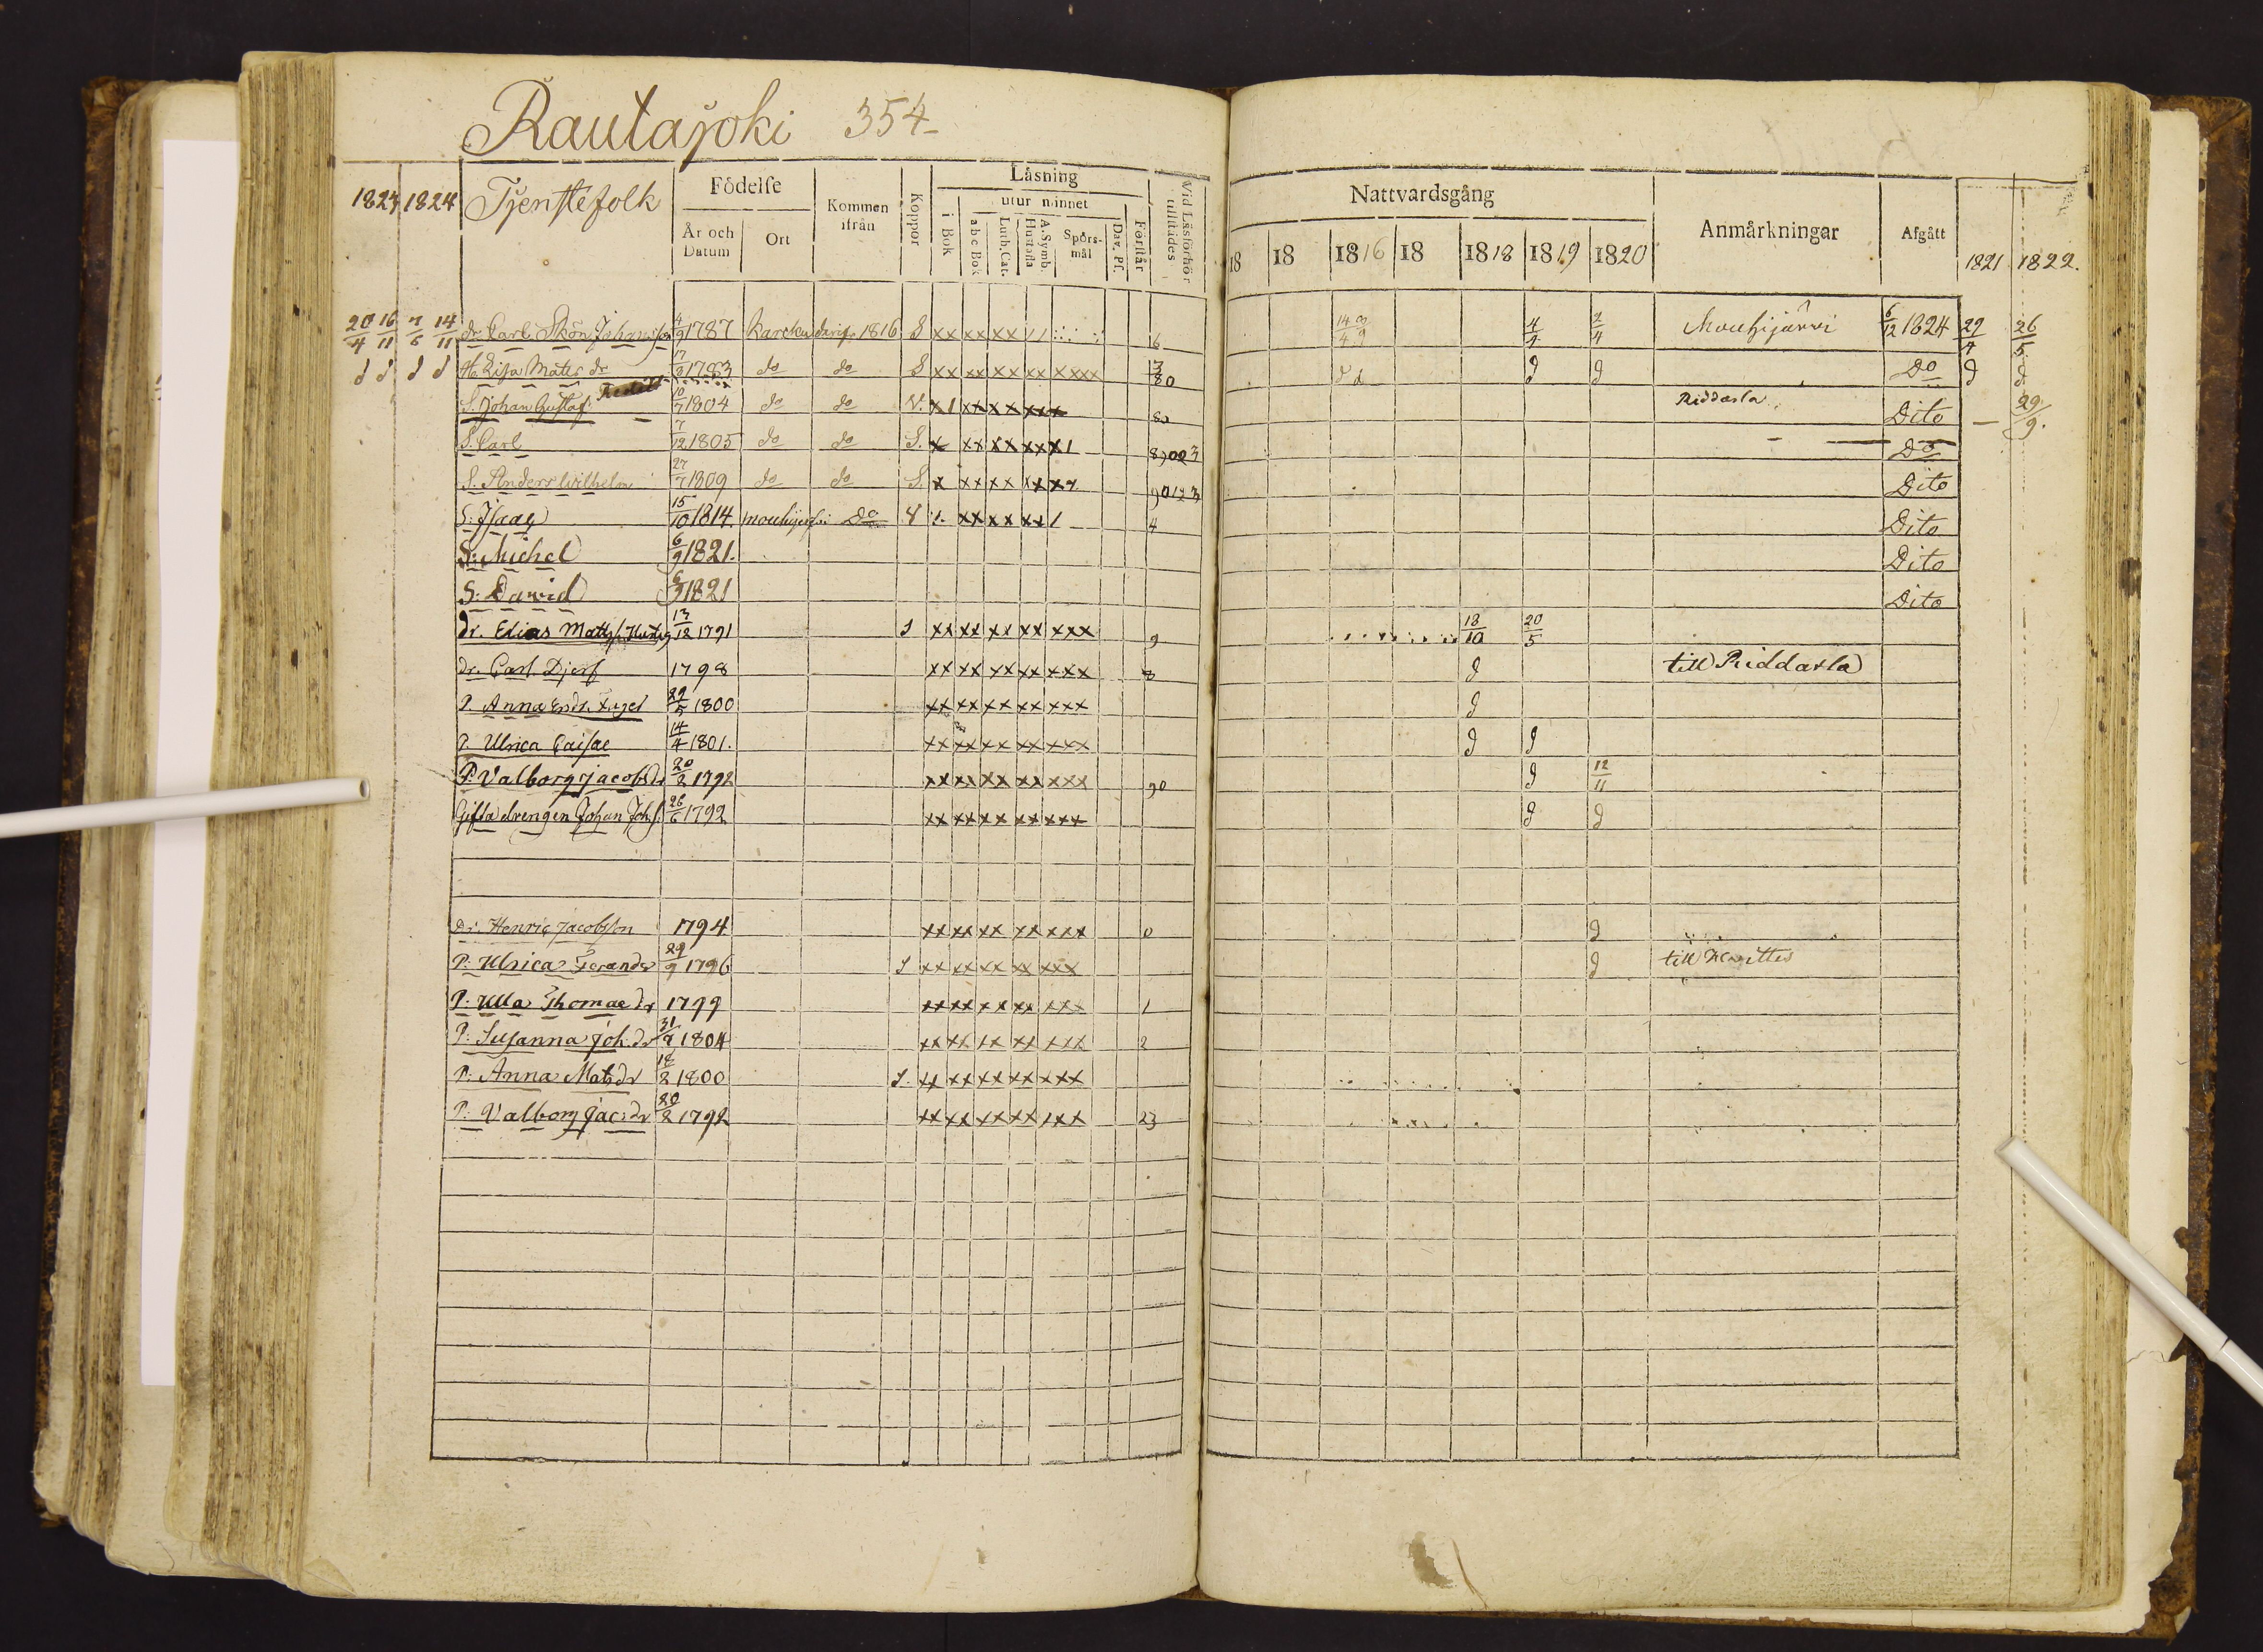 Rautajoki 354
1823 1824 Tjenstefolk Födelse Kommen ifrån Koppor Läsning Vid Läsförhör tulltides
År och Datum Ort i Bok utur minnet Förstår
a b c Bok Luth. Cat. A. Symb. Hustafla Spörsmål Dav. Ps.
Nattvardsgång Anmärkningar Afgått
18 18 1816 18 1818 1819 1820 1821 1822.
20/4 16/11 7/6 14/11 dr. Carl Skön Johansson 4/9 1787 Karcku 1816 S xx xx xx 16 4/4 2/4 Mouhijärvi 6/12 1824 29/4 26/5
d d d d H. Lisa Mats dr 17/8 1783 do do S xx xx xx xx xxxx d d Do d d
S. Johan Gustaf 10/7 1804 do do V. Riddarla Dito 29/9.
S. Carl 7/12 1805 do do S. Do
S. Anders Wilhelm 27/7 1809 do do S. Dito
S: Isaac 15/10 1814 Do 4 Dito
S: Michel 6/9 1821. Dito
S: David 6/9 1821 Dito
dr. Elias 13/12 1791 S xx xx xx xx xxx 9 18/10 20/5
dr. Carl Djerf 1798 xx xx xx xx xxx 8 d till Riddarla
P. Anna 29/5 1800 xx xx xx xx xxx d
P. Ulrica Caisae 14/4 1801. xx xx xx xx xxx d d
P: Valborg Jacobsdr 20/2 1792 xx xx xx xx xxx 90 d 12/11
Gifta drengen Johan Johs. 26/6 1792 xx xx xx xx xxx d d
dr. Henric Jacobsson 1794 xx xx xx xx xxx 0 d
P: Ulrica 29/9 1796 S xx xx xx xx xxx d till
P: Ulla Thomae dr 1799 xx xx xx xx xxx 1
P: Susanna Joh. dr 1804 xx xx xx xx xxx 2
P: Anna Matsdr 18/2 1800 S. xx xx xx xx xxx
P: Valborg Jac: dr 20/2 1792 xx xx xx xx xxx 23